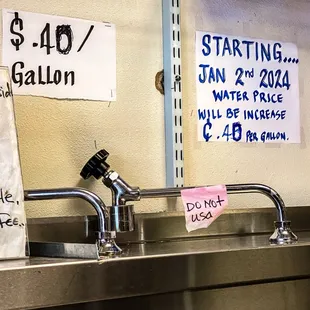 $.40/
Gallon
STARTING....
JAN 2nd 2024
WATER PRICE
WILL BE INCREASE
¢.40 PER GALLON.
DO NOT
USE